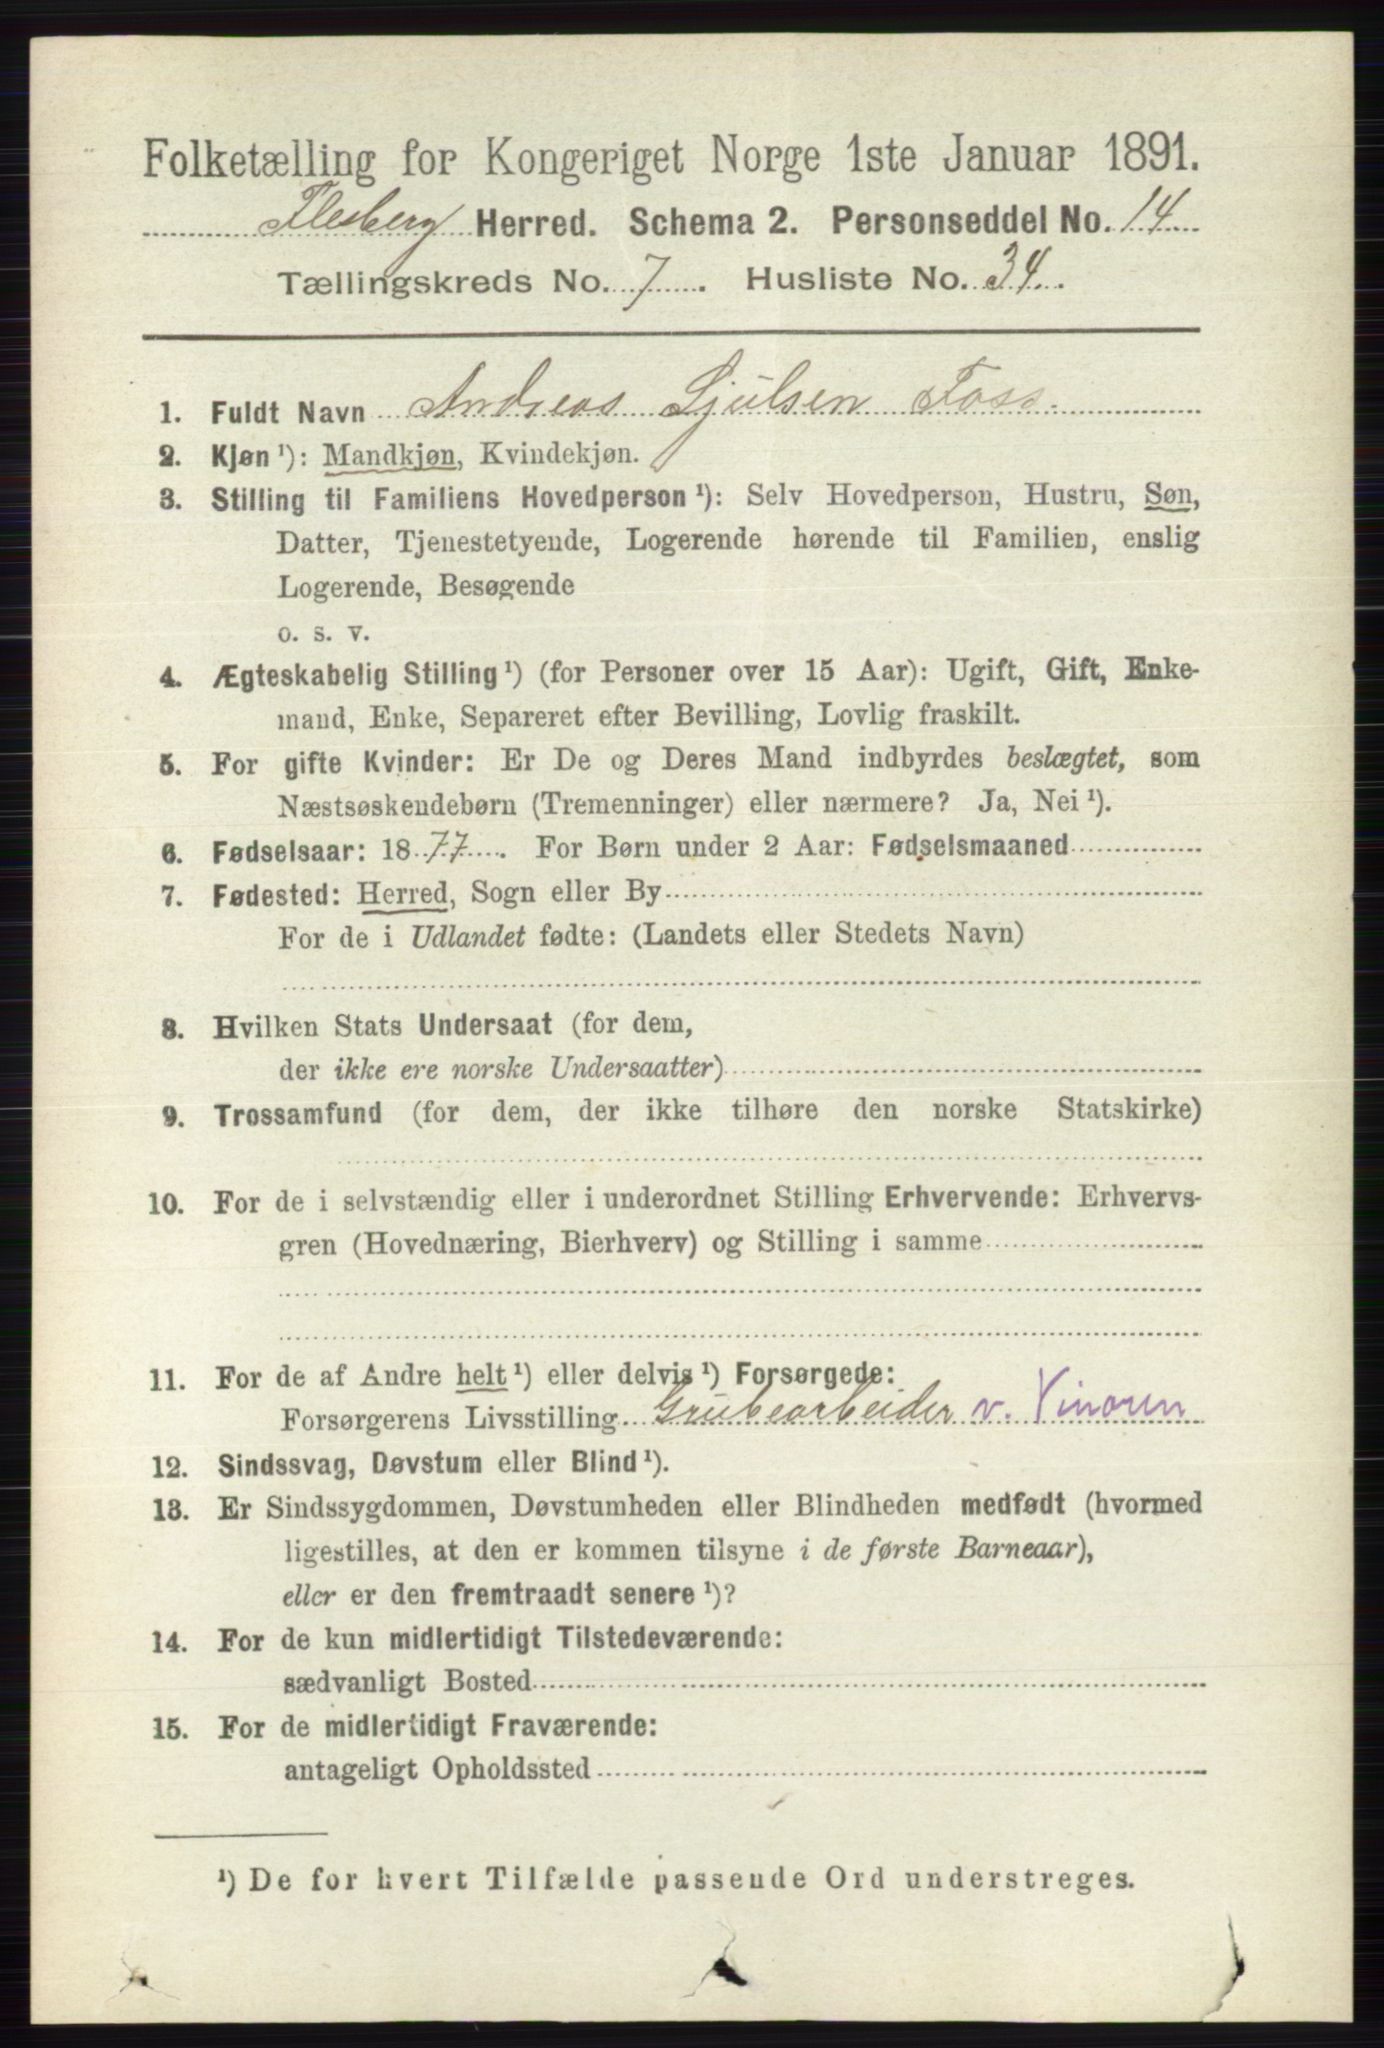 Folketælling for Kongeriget Norge 1ste Januar 1891.
Flesberg Herred. Schema 2. Personseddel No. 14
Tællingskreds No. 7. Husliste No. 34.
1. Fuldt Navn Andreas Sjulsen Foss.
2. Kjøn ¹): Mandkjøn, Kvindekjøn.
3. Stilling til Familiens Hovedperson ¹): Selv Hovedperson, Hustru, Søn,
Datter, Tjenestetyende, Logerende hørende til Familien, enslig
Logerende, Besøgende
o. s. v.
4. Ægteskabelig Stilling ¹) (for Personer over 15 Aar): Ugift, Gift, Enke-
mand, Enke, Separeret efter Bevilling, Lovlig fraskilt.
5. For gifte Kvinder: Er De og Deres Mand indbyrdes beslægtet, som
Næstsøskendebørn (Tremenninger) eller nærmere? Ja, Nei ¹).
6. Fødselsaar: 1877. For Børn under 2 Aar: Fødselsmaaned
7. Fødested: Herred, Sogn eller By
For de i Udlandet fødte: (Landets eller Stedets Navn)
8. Hvilken Stats Undersaat (for dem,
der ikke ere norske Undersaatter)
9. Trossamfund (for dem, der ikke tilhøre den norske Statskirke)
10. For de i selvstændig eller i underordnet Stilling Erhvervende: Erhvervs-
gren (Hovednæring, Bierhverv) og Stilling i samme
11. For de af Andre helt ¹) eller delvis ¹) Forsørgede:
Forsørgerens Livsstilling Grubearbeider v. Vinoren
12. Sindssvag, Døvstum eller Blind ¹).
13. Er Sindssygdommen, Døvstumheden eller Blindheden medfødt (hvormed
ligestilles, at den er kommen tilsyne i de første Barneaar),
eller er den fremtraadt senere ¹)?
14. For de kun midlertidigt Tilstedeværende:
sædvanligt Bosted
15. For de midlertidigt Fraværende:
antageligt Opholdssted
¹) De for hvert Tilfælde passende Ord understreges.